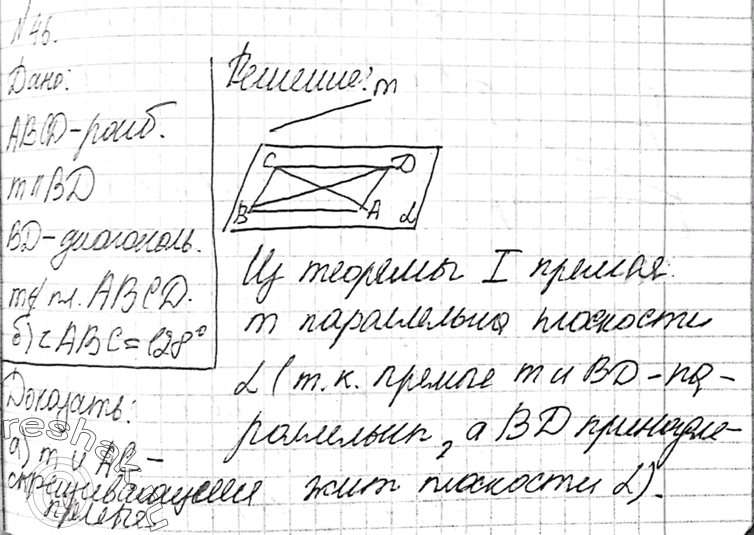 № 46.
Дано:
ABCD-ромб.
m ∥ BD
BD-диагональ.
m ⊄ пл. ABCD.
б) ∠ABC = 128°
Доказать:
а) m и AC -
скрещивающиеся
прямые
Решение:
m
C D
B A α
Из теоремы I прямая
m параллельна плоскости
α (т.к. прямые m и BD-па-
раллельны, а BD принадле-
жит плоскости α).
resh